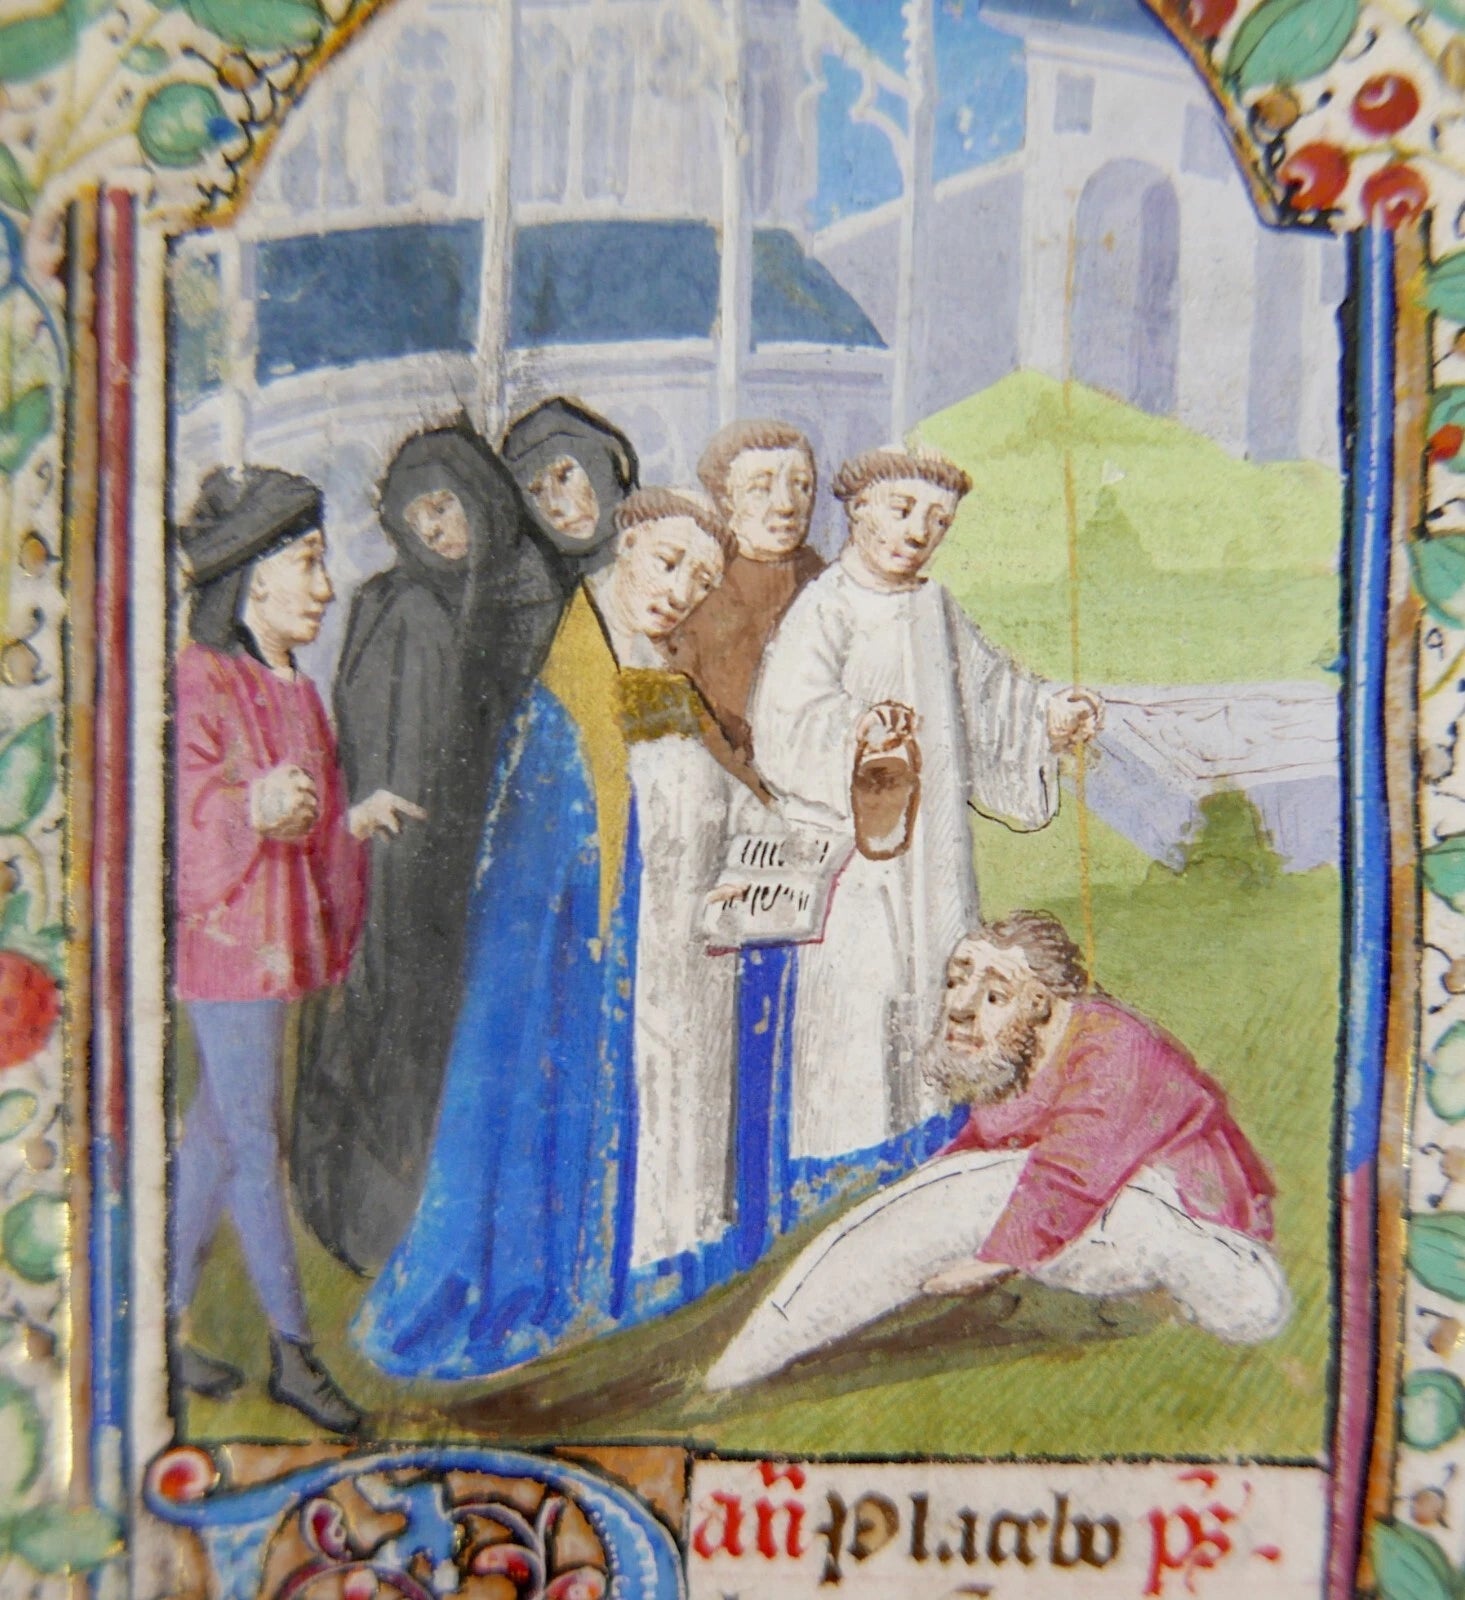 an̄ Placebo ps̄.